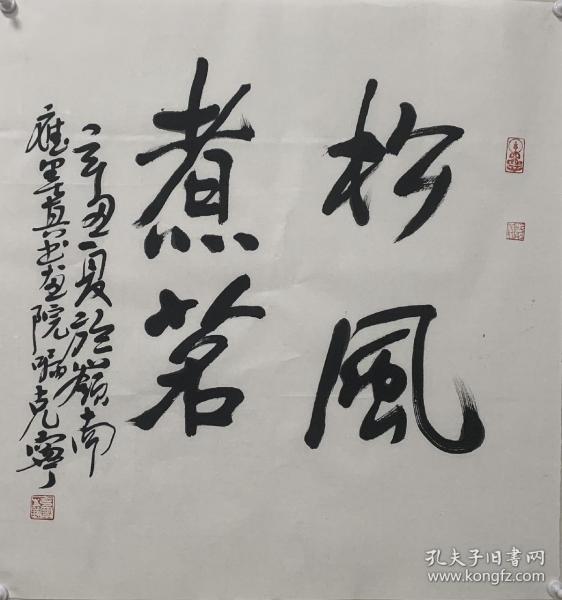 松風
煮茗
辛丑夏於嶺南
雁墨真书画院 克寧
孔夫子旧书网
www.kongfz.com